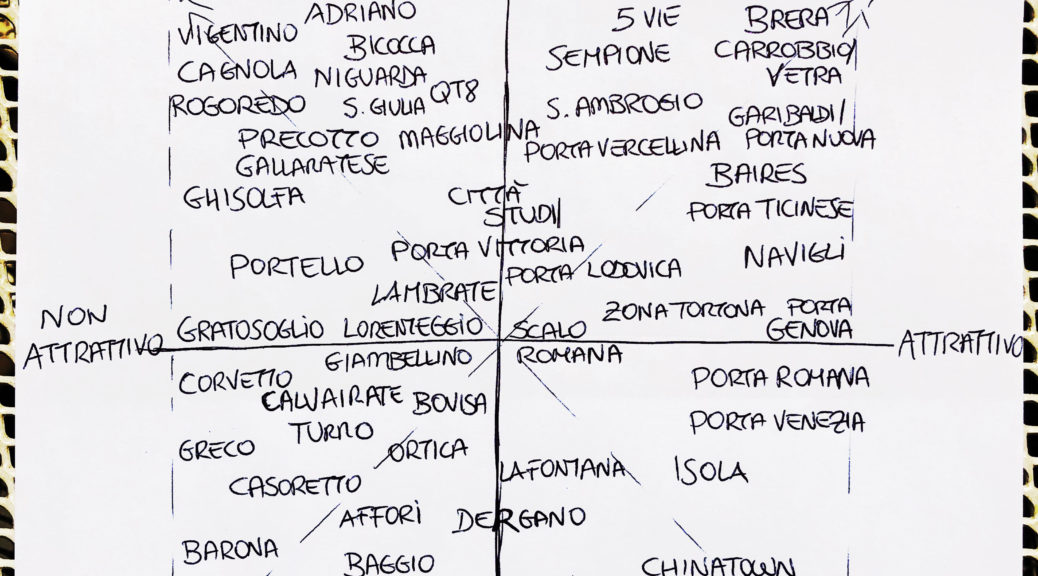 ADRIANO
5 VIE
BRERA
VIGENTINO
BICOCCA
SEMPIONE
CARROBBIO/
VETRA
CAGNOLA
NIGUARDA
QT8
ROGOREDO
S. GIULIA
S. AMBROGIO
GARIBALDI/
PORTA NUOVA
PRECOTTO
MAGGIOLINA
PORTA VERCELLINA
GALLARATESE
BAIRES
GHISOLFA
CITTÀ
STUDI
PORTA TICINESE
PORTA VITTORIA
NAVIGLI
PORTELLO
PORTA LODOVICA
LAMBRATE
ZONA TORTONA
PORTA
GENOVA
NON
ATTRATTIVO
GRATOSOGLIO
LORENTEGGIO
SCALO
ROMANA
ATTRATTIVO
GIAMBELLINO
CORVETTO
PORTA ROMANA
CALVAIRATE
BOVISA
PORTA VENEZIA
TURRO
GRECO
ORTICA
LAFONTANA
ISOLA
CASORETTO
AFFORI
DERGANO
BARONA
BAGGIO
CHINATOWN